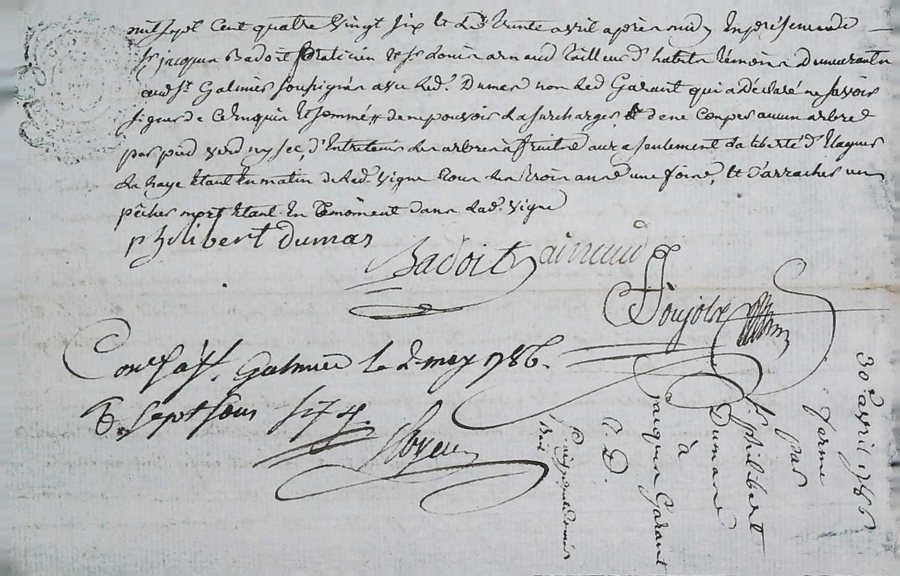 mil sept cent quatre vingt six le trente avril après midy En présence de
Sr jacques Badoit praticien & Sr Louis arnaud tailleur d'habits témoins demeurants
aud. St Galmier soussignés avec led. Dumas non led Garant qui a déclaré ne savoir
signer de ce enquis & sommé & de ne pouvoir la surcharger, & de ne couper aucun arbre
par pied verd ny sec, d'Entretenir les arbres a fruit aura seulement la liberté d'Elaguer
la haye Etant En matin de lad. vigne tous les trois ans une fois, & d'arracher un
pêcher mort Etant En ce moment dans lad. vigne
philibert dumas
Badoit arnaud
Poujolx
Con. a St Galmier le 2 may 1786.
R. Sept sous
30 avril 1786
ferme
par
Sr philibert
Dumas
à
jacques Garant
C. D.